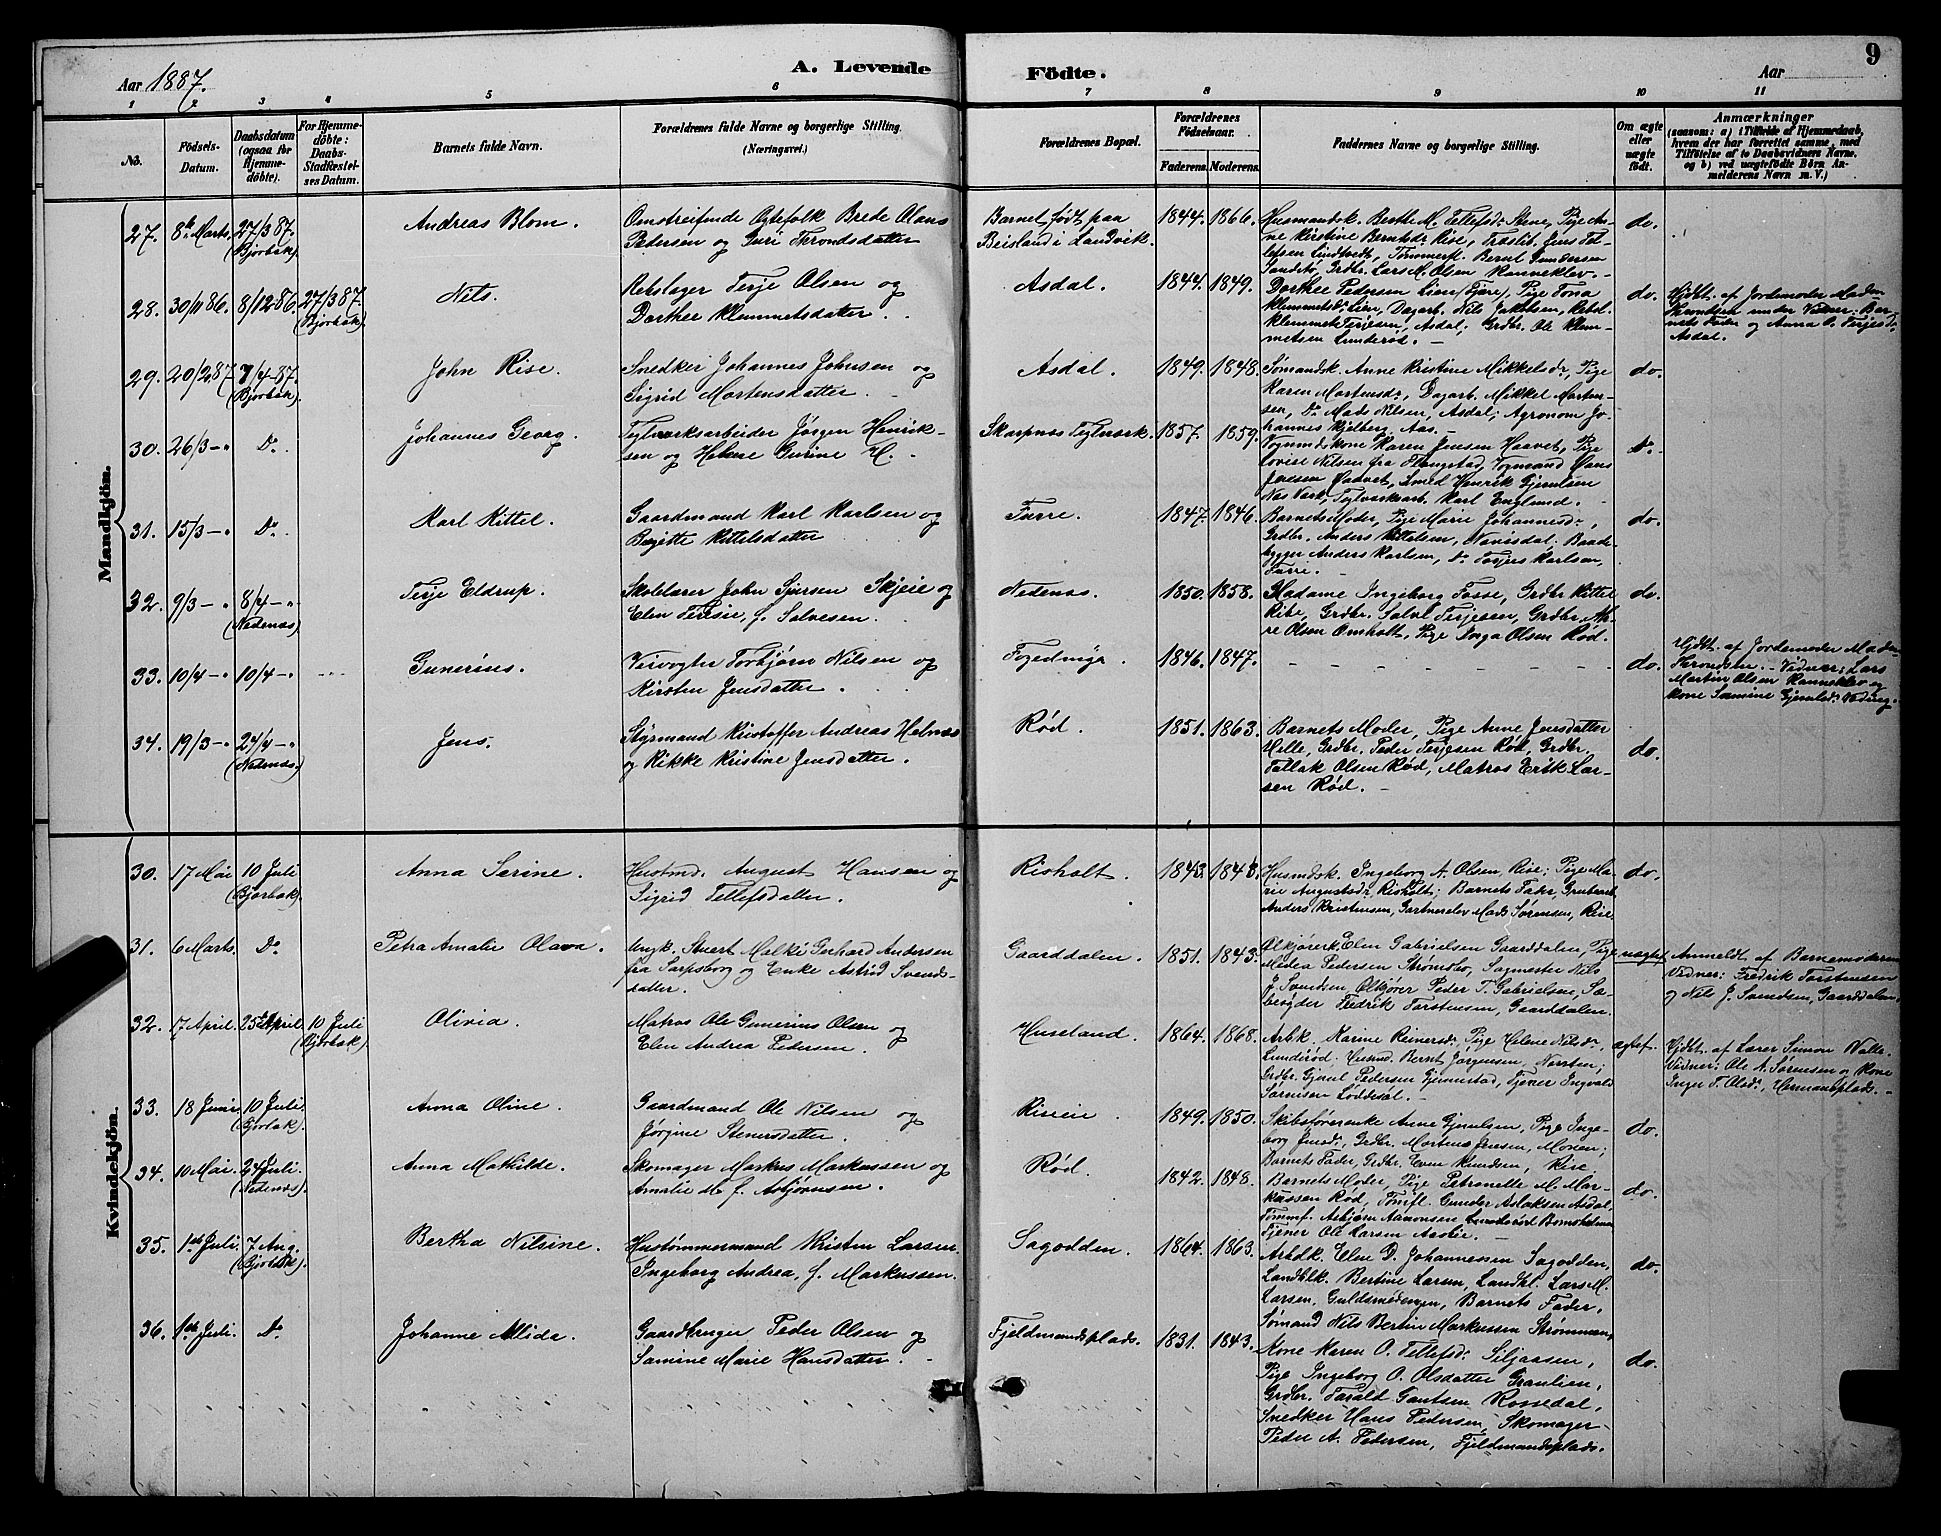 Aar 1887.
A. Levende
Födte.
Aar
9
1 2 3 4 5 6 7 8 9 10 11
No.
Födsels-
Datum.
Daabsdatum
(ogsaa for
Hjemme-
döbte).
For Hjemme-
döbte:
Daabs-
Stadfæstel-
ses Datum.
Barnets fulde Navn.
Forældrenes fulde Navne og borgerlige Stilling.
(Næringsvei.)
Forældrenes Bopæl.
Forældrenes
Födselsaar.
Faderens. Moderens.
Faddernes Navne og borgerlige Stilling.
Om ægte
eller
uægte
födt.
Anmærkninger
(saasom: a) i Tilfælde af Hjemmedaab,
hvem der har forrettet samme, med
Tilföielse af to Daabsvidners Navne,
og b) ved uægtefödte Börn An-
melderens Navn m. V.)
Mandkjön.
27. 8de Marts. 27/3 87. (Bjorbæk)
Andreas Blom.
Omstreifende Ægtefolk Brede Olaus
Pedersen og Guri Throndsdatter
Barnet født paa
Beisland i Landvik.
1844. 1866.
Husmandsk. Berthe M. Tellefsdr Stene, Pige An-
ne Kirstine Berntsdr Rise, Træslib. Jens Tel-
lefsen Lindtvedt, Tømmerk. Bernt Gundersen
Sandstø, Grdbr. Lars M. Olsen Ranneklev.
do.
28. 30/11 86. 8/12 86. 27/3 87. (Bjorbæk)
Nils.
Rebslager Terje Olsen og
Dorthea Klemmetsdatter.
Asdal.
1844. 1849.
Dorthea Pedersen Lien (Fjære), Pige Tona
Klemmetsdr Lien, Dagarb. Nils Jakobsen, Rebsl.
Klemmet Terjesen, Asdal. Grdbr. Ole Klem-
metsen Lunderød.
do.
Hjdbt. af Jordemoder Maden
Throndsen under Vidner: Bar-
nets Fader og Anna O. Terjesdr
Asdal.
29. 20/2 87. 7/4 - 87. (Bjorbæk)
John Rise.
Snedker Johannes Johnsen og
Sigrid Mortensdatter.
Asdal.
1849. 1848.
Sømandsk. Anne Kristine Mikkelsdr, Pige
Karen Mortensdr, Dagarb. Mikkel Morten-
sen, Do Mads Nilsen, Asdal; Agronom Jo-
hannes Kjelberg, Aas.
do.
30. 26/3 - " Do.
Johannes Georg.
Teglværksarbeider Jörgen Henrik-
sen og Helene Gurine H.
Skarpnes Teglværk.
1857. 1859.
Vognmdskone Karen Jensen Haavet, Pige
Lovise Nilsen fra Flangstad, Vognmand Hans
Jensen Haavet, Smed Henrik Gjerulsen
Næs Værk, Teglværksarb. Karl Englund.
Do.
31. 15/3 - " Do.
Karl Kittel.
Gaardmand Karl Karlsen og
Birgitte Kittelsdatter
Furre.
1847. 1846.
Barnets Moder, Pige Marie Johannesdr,
Grdbr. Anders Kittelsen, Navisdal. Baad-
bygger Anders Karlsen, Do Torjers Karlsen,
Furre.
do.
32. 9/3 - " 8/4 - " (Nedenæs)
Terje Eldrup.
Skolelærer John Sjursen Skjeie og
Elen Teresie, f. Salvesen.
Nedenæs.
1850. 1858.
Madame Ingeborg Fosse, Grdbr Kittel
Ribe, Grdbr. Salve Terjesen, Grdbr. Aa-
re Olsen Omholt, Pige Inga Olsen Rød.
do.
33. 10/4 - " 10/4 - "
Gunerius.
Veivogter Torbjørn Nilsen og
Kirsten Jensdatter.
Fogedmyr.
1846. 1847.
do.
Hjdbt. af Jordemoder Maden
Throndsen. - Vidner: Lars
Martin Olsen Ranneklev og
Kone Samine Gjerulsdr
34. 19/3 - " 24/4 - " (Nedenæs)
Jens.
Styrmand Kristoffer Andreas Helnæs
og Rikke Kristine Jensdatter.
Rød.
1851. 1863.
Barnets Moder, Pige Anne Jensdatter
Helle, Grdbr. Peder Terjesen Rød, Grdbr.
Tallak Olsen Rød, Matros Erik Lar-
sen Rød.
do.
Kvindekjön.
30. 17 Mai 10 Juli (Bjorbæk).
Anna Serine.
Hustmd. August Hansen og
Sigrid Tellefsdatter.
Risholt.
1843. 1843.
Husmdsk. Ingeborg A. Olsen, Rise; Pige Ma-
rie Augustsdr Risholt; Barnets Fader, Grubearb
Anders Kristensen, Gartnerelev Mads Sørensen, Rise
do.
31. 6 Marts. Do.
Petra Amalie Olava.
Ungk. Stuert Malke Gerhard Andersen
fra Sarpsborg og Enke Astrid Svends-
datter.
Gaarddalen.
1851. 1843.
Ølkjørerk. Elen Gabrielsen Gaarddalen, Pige
Medea Pedersen Strømsbo, Sagmester Nils
J. Svendsen, Ølkjører Peder T. Gabrielsen, Sæ-
besyder Fredrik Torstensen, Gaarddalen.
uægtef.
Anmeldt af Barnemoderen
Vidner: Fredrik Torstensen
og Nils J. Svendsen, Gaarddalen.
32. 17 April. 25de April 10 Juli (Bjorbæk)
Olivia.
Matros Ole Gunerius Olsen og
Elen Andrea Pedersen.
Huseland.
1864. 1868.
Arbk. Karine Reinersdr, Pige Helene Nilsdr,
Lunderød. Husmd. Bernt Jørgensen, Norsten;
Grdbr. Gjerul Pedersen Gjennestad, Tjener Ingvald
Sørensen Løddesøl.
ægtef.
Hjdbt. af Lærer Simon Valle.
Vidner: Ole A. Sørensen og Kone
Inger T. Olsdr, Hermansplads.
33. 18 Juni. 10 Juli. (Bjorbæk).
Anna Oline.
Gaardmand Ole Nilsen og
Jørgine Stenersdatter.
Riseeie.
1849. 1850.
Skibsførerenke Anne Gjerulsen, Pige Inge-
borg Jensdr, Grdbr. Mortens Jensen, Moren;
Barnets Fader, Grdbr. Even Knudsen, Rise.
do.
34. 10 Mai. 24 Juli. (Nedenæs).
Anna Mathilde.
Skomager Markus Markussen og
Amalie M. f. Asbjørnsen.
Rød.
1842. 1848.
Barnets Moder, Pige Petronelle M. Mar-
kussen Rød, Tømfl. Gunder Aslaksen Asdal,
Tømmf. Asbjørn Aanonsen
Tjener Ole Larsen Aasbie.
do.
35. 1ste Juli. 7 Aug. (Bjorbæk)
Bertha Nilsine.
Hustømmermand Kristen Larsen.
Ingeborg Andrea, f. Markussen.
Sagodden.
1864. 1863.
Arbdk. Elen D. Johannessen Sagodden,
Landhlk. Bertine Larsen, Landhl. Lars M.
Larsen, Guldsmedengen, Barnets Fader,
Sømand Nils Bertin Markussen Strømmen.
do.
36. 1ste Juli. Do.
Johanne Alida.
Gaardbruger Peder Olsen og
Samine Marie Hansdatter.
Fjeldmandsplads.
1831. 1843.
Kone Karen O. Tellefsdr Siljaasen,
Pige Ingeborg O. Olsdatter Granlien,
Grdbr. Tarald Gautsen Rossedal,
Snedker Hans Pedersen, Skomager
Peder A. Pedersen, Fjeldmandsplads.
do.